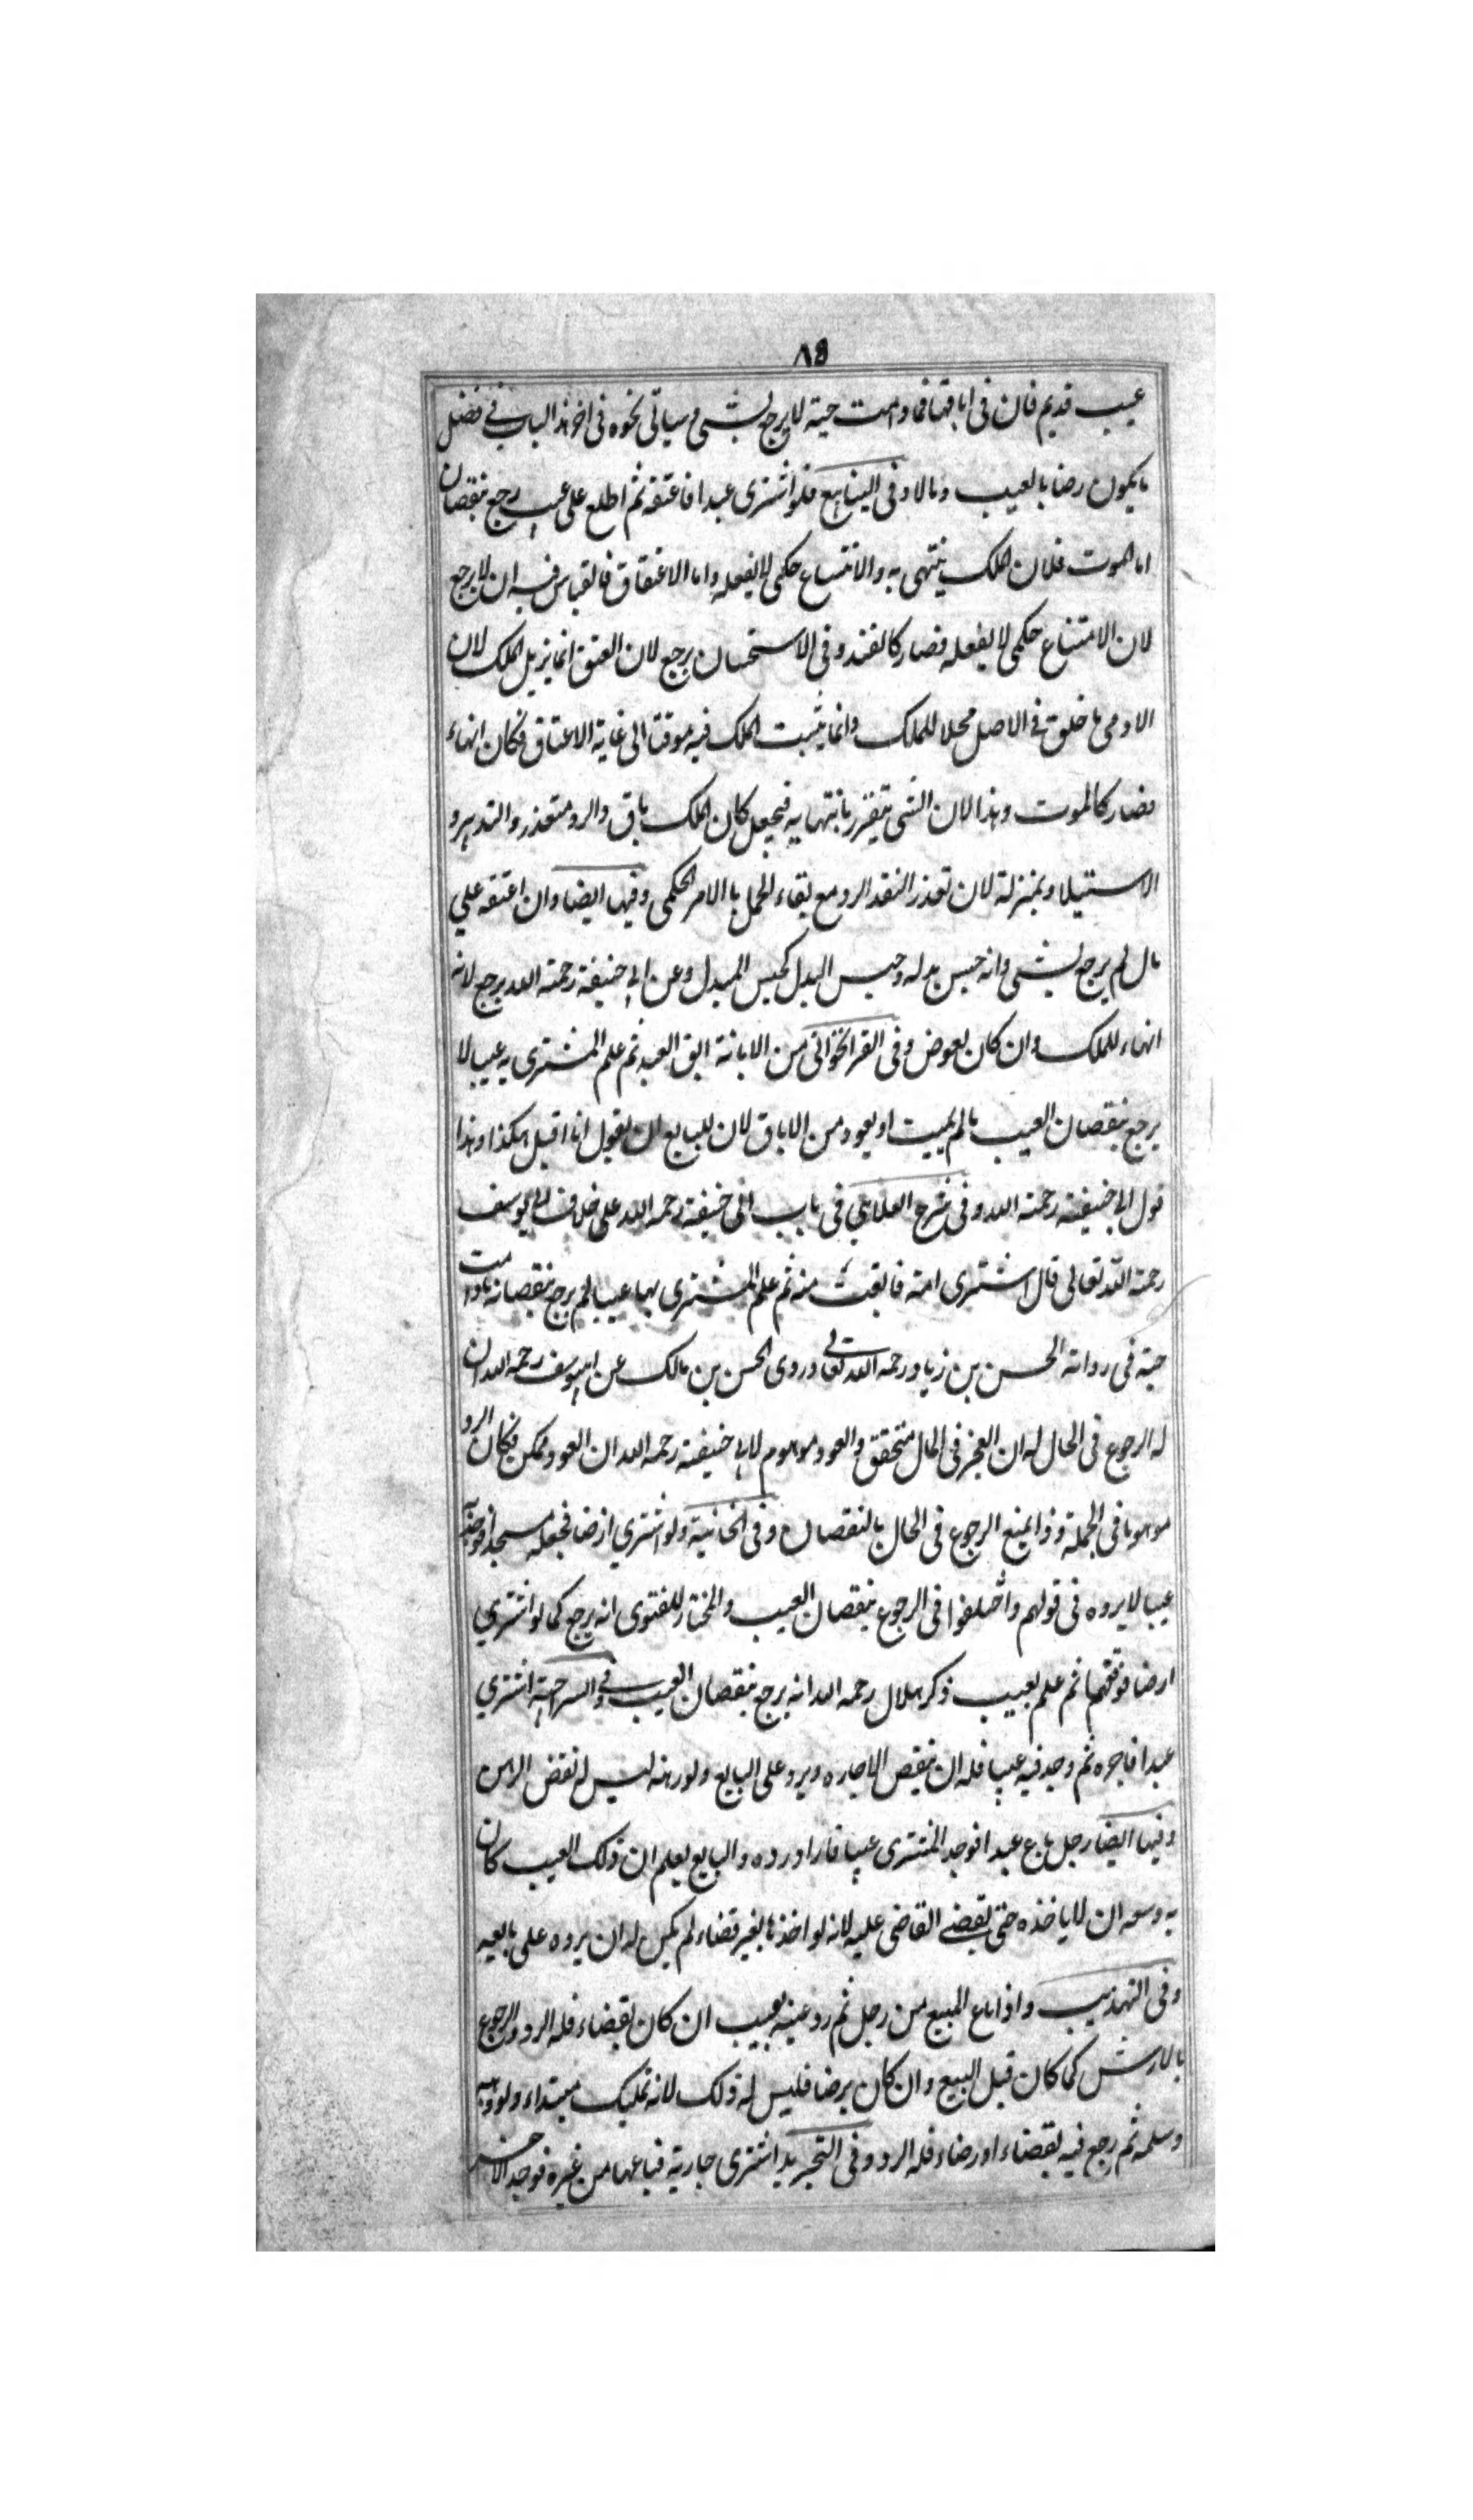 ٨٥
عيب قديم فان في اباقها فما دامت حية لا يرجع بشي وسياتي نحوه في اخر هذا الباب في فصل
ما يكون رضا بالعيب وما لا وفي الينابيع فلو اشترى عبدا فاعتقه ثم اطلع على عيب رجع بنقصان
اما الموت فلان الملك ينتهي به والامتناع حكمي لا بفعله واما الاعتاق فالقياس فيه ان لا يرجع
لان الامتناع حكمي لا بفعله فصار كالقتل وفي الاستحسان يرجع لان العتق انما يزيل الملك لان
الادمى ما خلق في الاصل محلا للملك وانما يثبت الملك فيه موقتا الى غاية الاعتاق فكان انهاء
فصار كالموت وهذا لان الشى يتقرر بانتهايه فيجعل كان الملك باق والرد متعذر والتدبير و
الاستيلاد بمنزلة لان تعذر النقد الرد مع بقاء المحل بالامر الحكمى وفيها ايضا وان اعتقه علي
مال لم يرجع بشي وانه حبس بدله وحبس البدل كحبس المبدل وعن ابي حنيفة رحمة الله يرجع لانه
انهاء للملك وان كان بعوض وفى القراخواني من الاباقة ابق العبد ثم علم المشترى به عيبا لا
يرجع بنقصان العيب ما لم يميت او يعود من الاباق لان للبايع ان يقول انا اقبل هكذا وهذا
قول ابي حنيفة رحمة الله وفى شرح العلايي فى باب ابى حنيفة رحمه الله على خلاف ابي يوسف
رحمة الله تعالى قال اشترى امة فابقت منه ثم علم المشترى بها عيبا لم يرجع بنقصانه ما دامت
حية فى رواية الحسن بن زياد رحمه الله تعالى وروى الحسن بن مالك عن ابيوسف رحمه الله ان
له الرجوع فى الحال له ان العجز فى الحال متحقق والعود موهوم لابي حنيفة رحمه الله ان العود ممكن فكان الرد
موهوما فى الجملة وذا يمنع الرجوع فى الحال بالنقصان وفى الخانية ولو اشتري ارضا فجعله مسجدا ووجد به
عيبا لا يرده فى قولهم واختلفوا فى الرجوع بنقصان العيب والمختار للفتوى انه يرجع كما لو اشتري
ارضا فوقفها ثم علم بعيب ذكر هلال رحمه الله انه يرجع بنقصان العيب وفي السراجية اشتري
عبدا فاجره ثم وجد فيه عيبا فله ان ينقض الاجاره ويرد على البايع ولو رهنه ليس له نقض الرهن
وفيها ايضا رجل باع عبدا فوجد المشترى عيبا فاراد رده والبايع يعلم ان ذلك العيب كان
به وسعه ان لا ياخذه حتى يقضى القاضى عليه لانه لو اخذها بغير قضاء لم يكن له ان يرده على بايعه
وفى التهذيب واذا باع المبيع من رجل ثم رد عينه بعيب ان كان بقضاء فله الرد والرجوع
بالارش كما كان قبل البيع وان كان برضا فليس له ذلك لانه تمليك مبتداء ولو وهبه
وسلمه ثم رجع فيه بقضاء او رضاء فله الرد وفى التجريد اشترى جارية فباعها من غيره فوجد الاخر